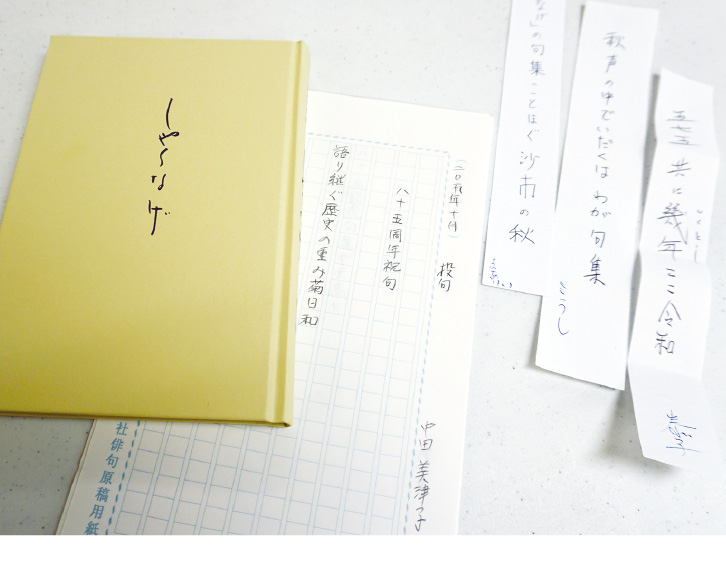 しゃくなげ
五七五 共に幾年ここ令和
いくとし
秋声の中でいだくはわが句集
さつし
なげ」の句集ことほぐ沙南の秋
(二〇一九年十月)
投句
中田 美津子
八十五周年祝句
語り継ぐ歴史の重み菊日和
社俳句原稿用紙